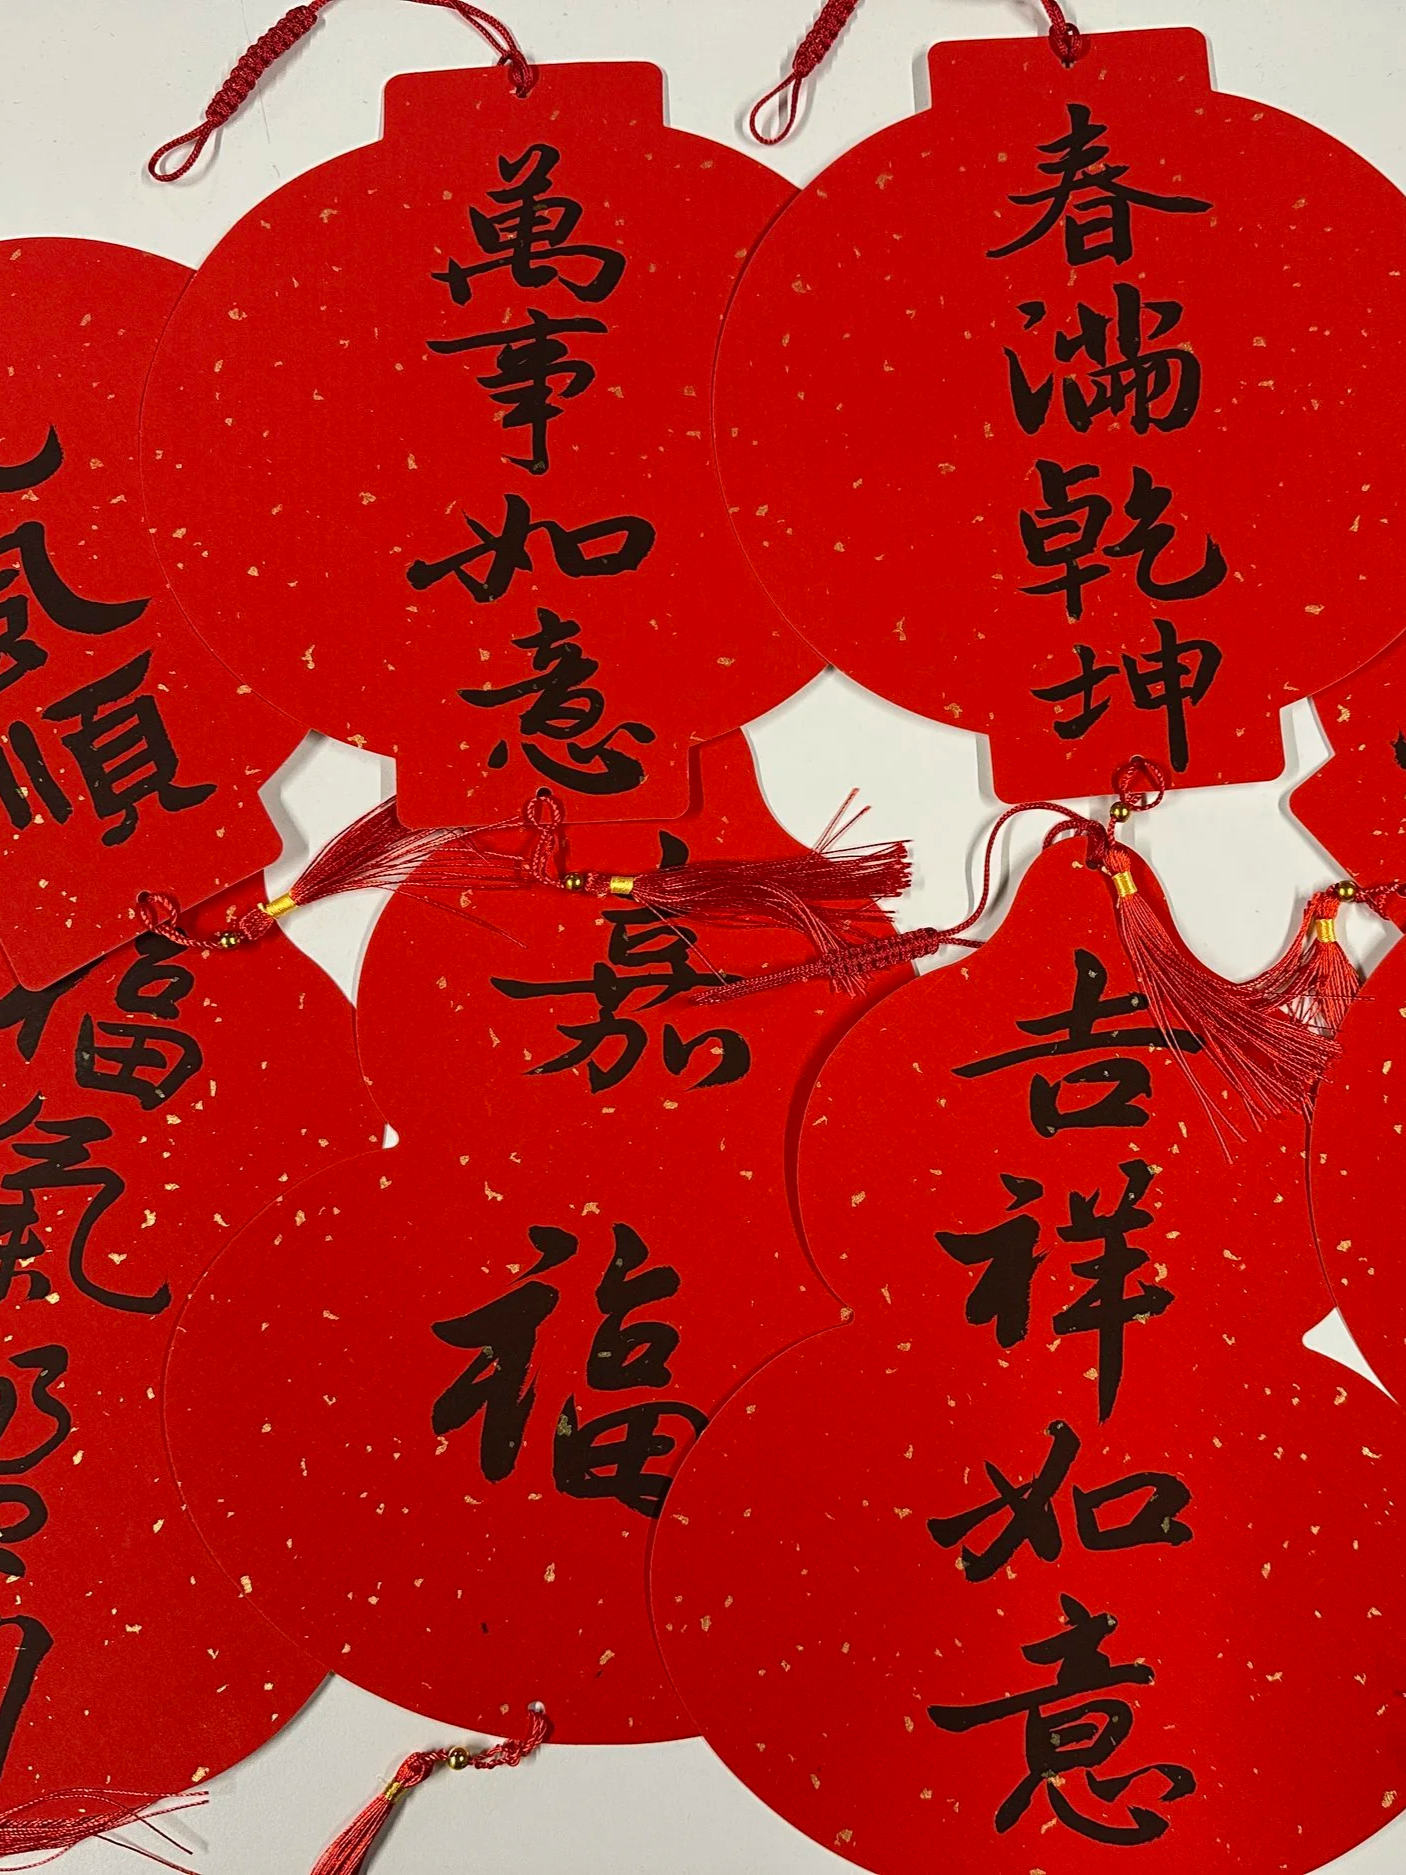 春滿乾坤
萬事如意
風順
吉祥如意
嘉福
福氣